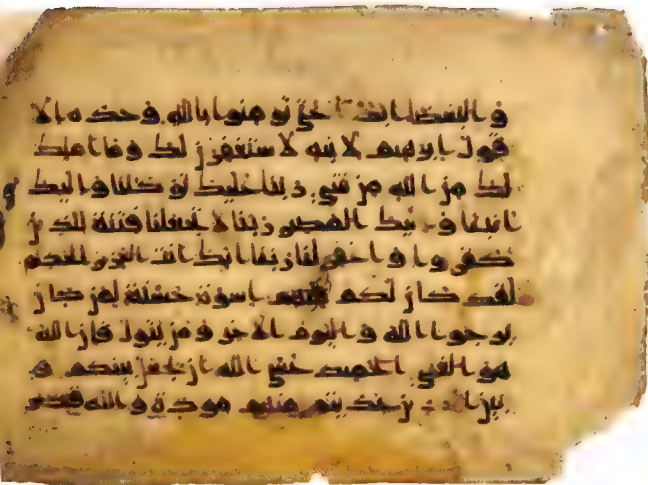 و البغضا ابدا حتى تومنوا بالله وحده الا
قول ابرهيم لابيه لاستغفرن لك وما املك
لك من الله من شي ربنا عليك توكلنا واليك
انبنا و اليك المصير ربنا لا تجعلنا فتنة للذين
كفروا واغفر لنا ربنا انك انت العزيز الحكيم
لقد كان لكم فيهم اسوة حسنة لمن كان
يرجوا الله واليوم الاخر ومن يتول فان الله
هو الغني الحميد عسى الله ان يجعل بينكم و
بين الذين عديتم منهم مودة والله قدير